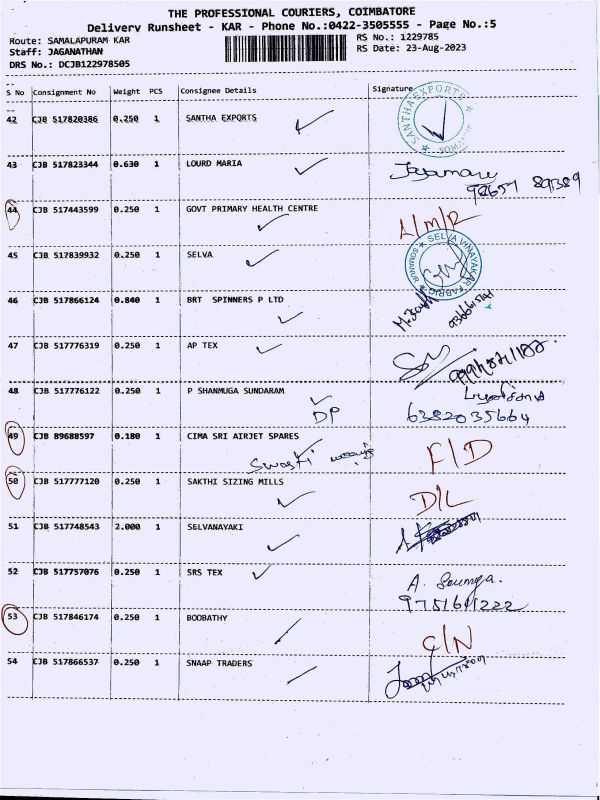 THE PROFESSIONAL COURIERS, COIMBATORE
Delivery Runsheet - KAR - Phone No.:0422-3505555 - Page No.:5
Route: SAMALAPURAM KAR RS No.: 1229785
Staff: JAGANATHAN RS Date: 23-Aug-2023
DRS No.: DCJB122978505
S No Consignment No Weight PCS Consignee Details Signature
42 CJB 517820386 0.250 1 SANTHA EXPORTS SANTHA EXPORTS
43 CJB 517823344 0.630 1 LOURD MARIA
98657 89389
44 CJB 517443599 0.250 1 GOVT PRIMARY HEALTH CENTRE A/M/R
45 CJB 517839932 0.250 1 SELVA SELVA VINAYAKAR FABRIC SOMANUR
46 CJB 517866124 0.840 1 BRT SPINNERS P LTD
47 CJB 517776319 0.250 1 AP TEX
48 CJB 517776122 0.250 1 P SHANMUGA SUNDARAM
DP 6382035664
49 CJB 89688597 0.180 1 CIMA SRI AIRJET SPARES F/D
Swasti
50 CJB 517777120 0.250 1 SAKTHI SIZING MILLS D/L
51 CJB 517748543 2.000 1 SELVANAYAKI
52 CJB 517757076 0.250 1 SRS TEX A. Soumya.
53 CJB 517846174 0.250 1 BOOBATHY C/N
54 CJB 517866537 0.250 1 SNAAP TRADERS